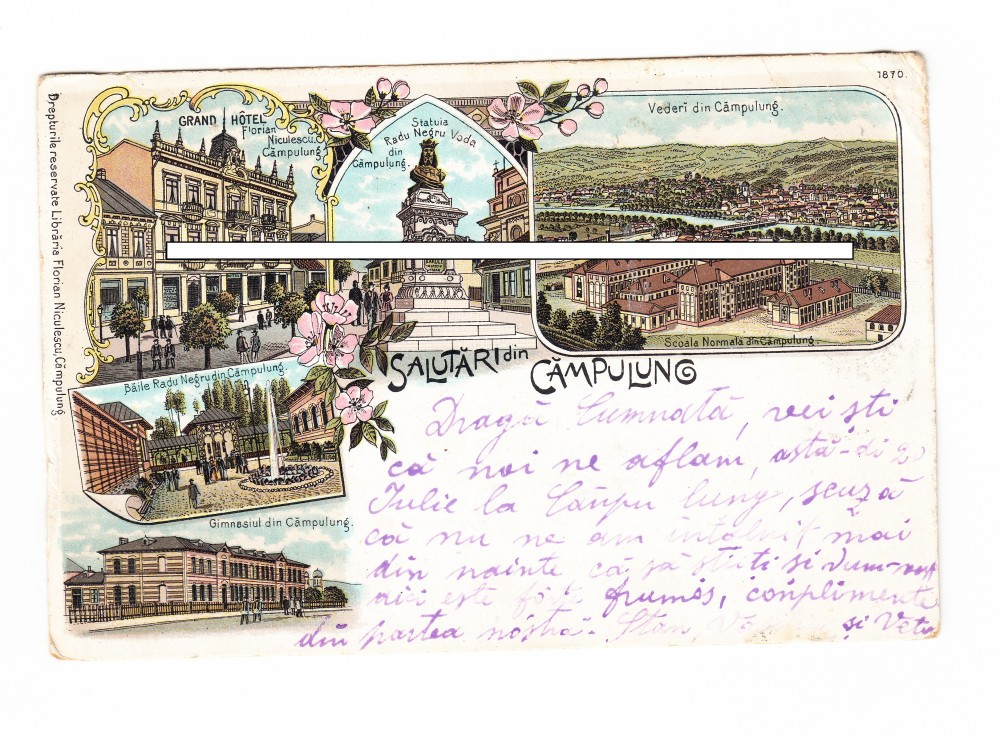 1870.
Drepturile reservate Librăria Florian Niculescu, Câmpulung
GRAND HÔTEL
Florian
Niculescu,
Câmpulung.
Statuia
Radu Negru Voda
din
Câmpulung.
Vederi din Câmpulung.
Scoala Normala din Câmpulung
Băile Radu Negru din Câmpulung.
Gimnasiul din Câmpulung.
SALUTĂRI din CÂMPULUNG
Dragă Cumnată, vei ști
că noi ne aflam, astă-di 20
Iulie la Câmpu lung, scuză
că nu ne am intâlnit mai
din nainte că să știti si dum-
aici este fórte frumós, conplimente
din partea nóstră. Stan, și Veta